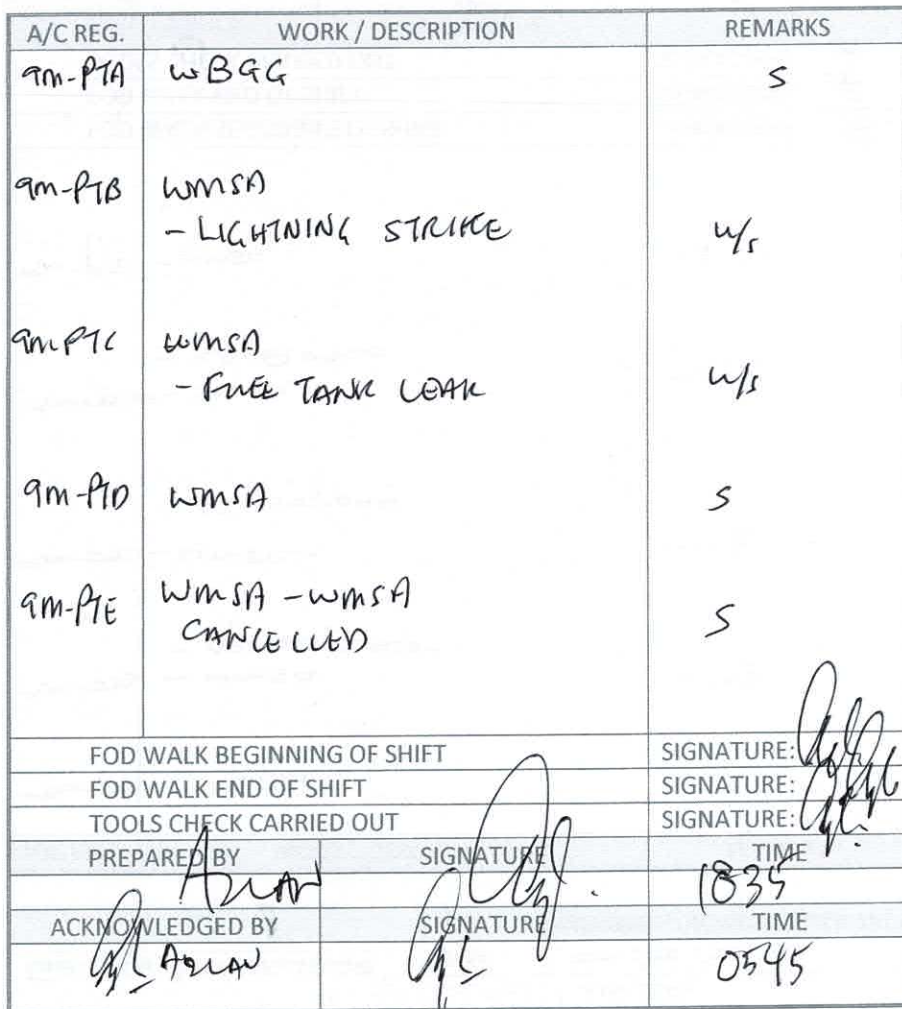 A/C REG. WORK / DESCRIPTION REMARKS
9M-PTA WBGG S
9M-PTB WMSA
- LIGHTNING STRIKE u/s
9M-PTC WMSA
- FUEL TANK LEAK u/s
9M-PTD WMSA S
9M-PTE WMSA - WMSA
CANCELLED S
FOD WALK BEGINNING OF SHIFT SIGNATURE:
FOD WALK END OF SHIFT SIGNATURE:
TOOLS CHECK CARRIED OUT SIGNATURE:
PREPARED BY SIGNATURE TIME
AZLAN 1835
ACKNOWLEDGED BY SIGNATURE TIME
AZLAN 0545